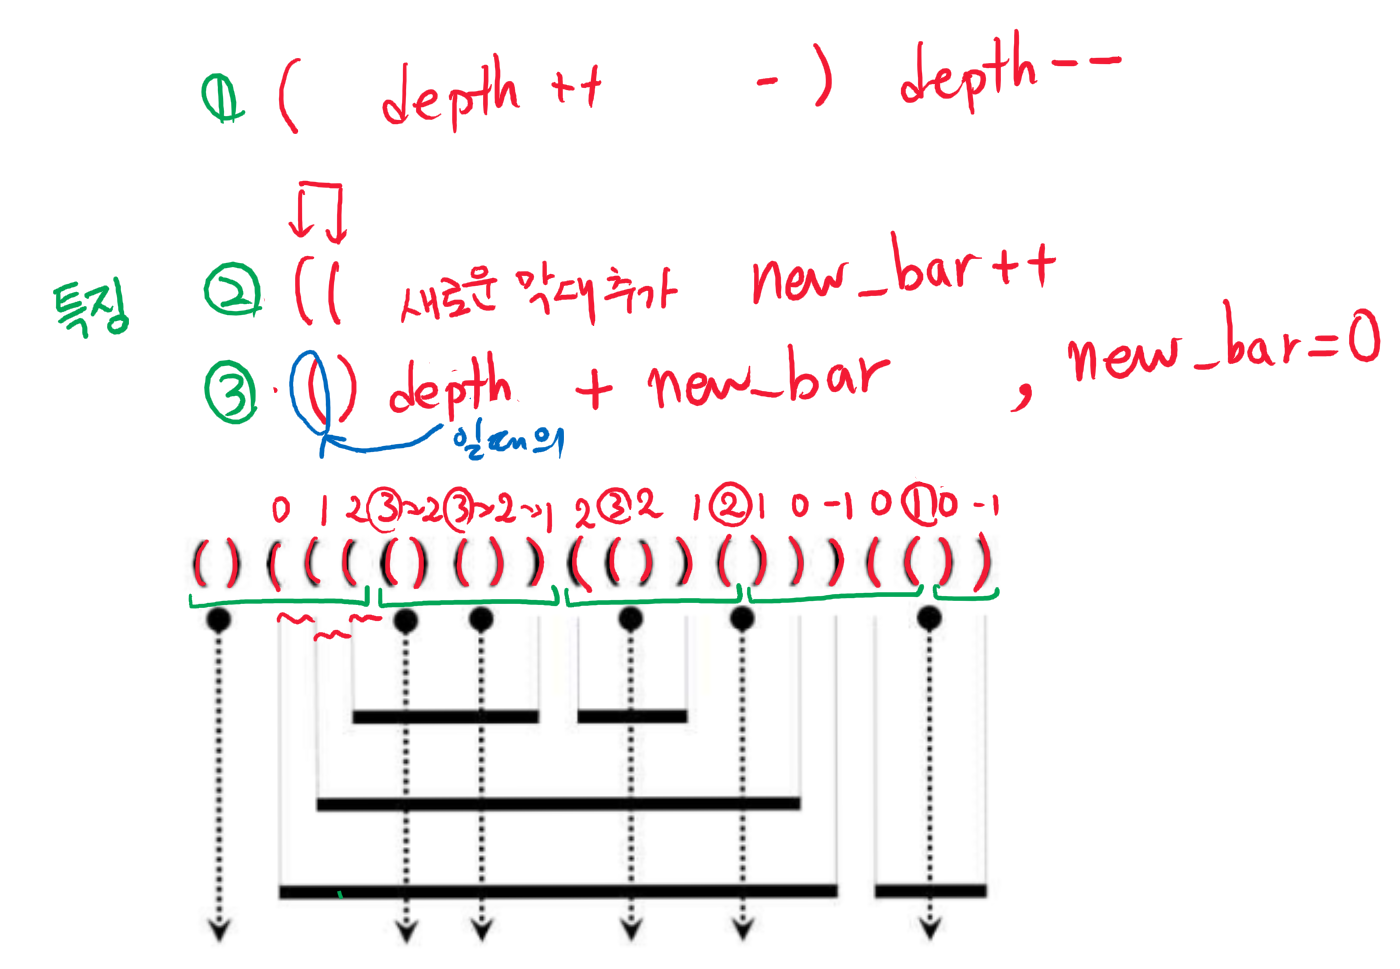 ① ( depth ++ - ) depth--
특징 ② (( 새로운 막대추가 new_bar++
③ · () depth + new_bar , new_bar=0
일때의
0 1 2 ③~2 ③~2~1 2 ③ 2 1 ② 1 0 -1 0 ① 0 -1
() ( ( ( () () ) ( () ) () ) ) ( () )